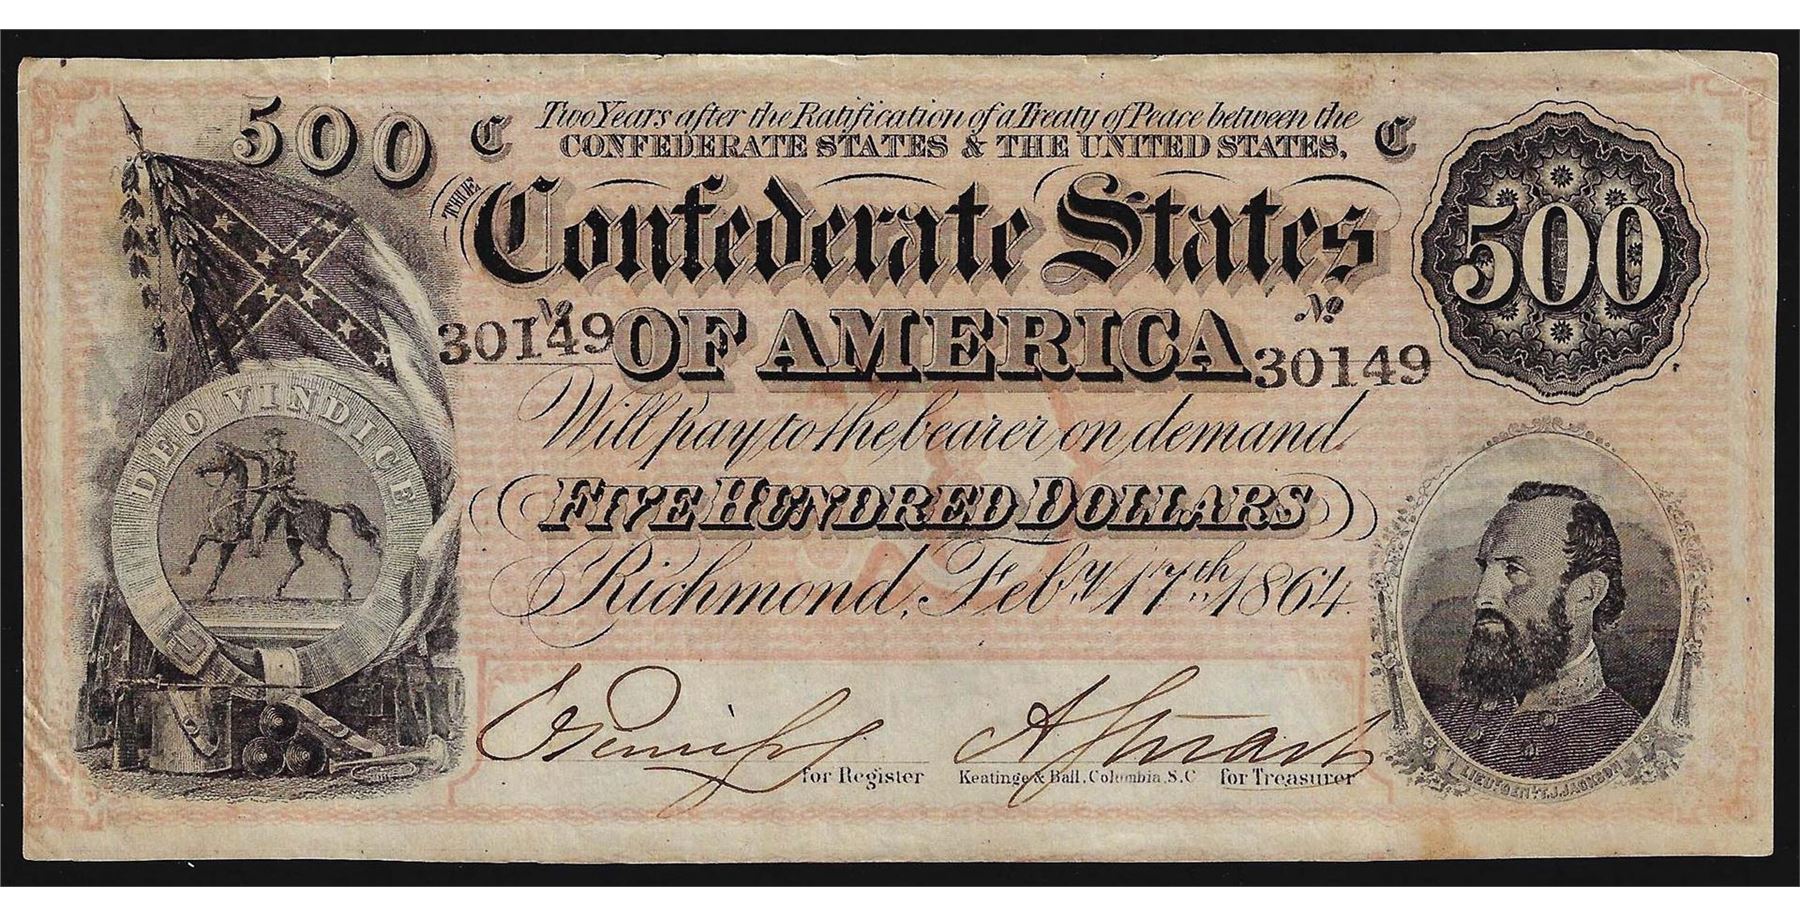 500
C Two Years after the Ratification of a Treaty of Peace between the C
CONFEDERATE STATES & THE UNITED STATES,
500
THE Confederate States
No No
30149 OF AMERICA 30149
Will pay to the bearer on demand
FIVE HUNDRED DOLLARS
Richmond, Feby. 17th. 1864
DEO VINDICE
A Stuart
for Register Keatinge & Ball, Columbia, S.C for Treasurer
LIEUT. GENL. T.J. JACKSON